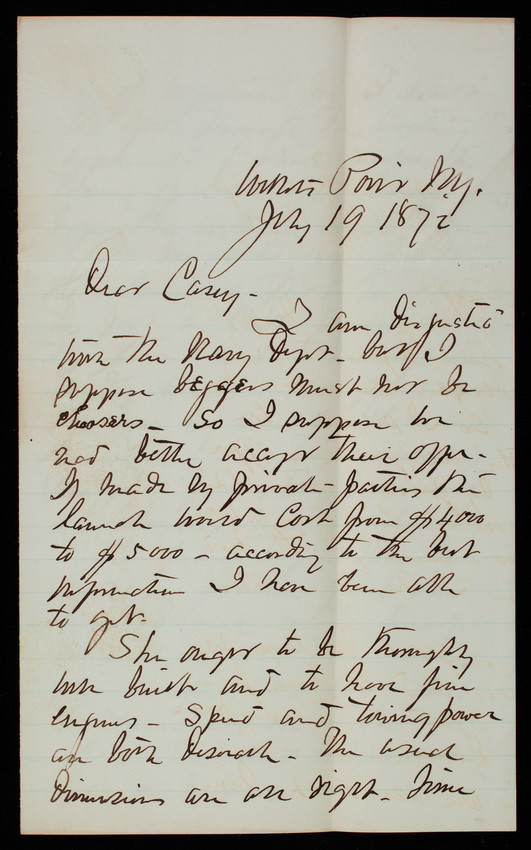 Willets Point N.Y.
July 19 1872
Dear Casey -
I am disgusted
with the Navy Dept - but I
suppose beggars must not be
choosers - So I suppose we
had better accept their offer -
If made by private parties the
launch would cost from $4000
to $5000 - according to the best
information I have been able
to get.
She ought to be thoroughly
well built and to have fine
engines - Speed and towing power
are both desirable - The usual
dimensions are all right - Time